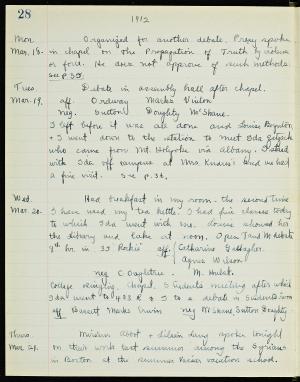 28
1912
Mon. Organized for another debate. Prexy spoke
Mar. 18. in chapel on the Propagation of Truth by violence
or force. He does not approve of such methods.
see p 35.
Tues. Debate in assembly hall after chapel.
Mar. 19. aff. Ordway Marks Vinton
neg. Sutton Doughty McShane.
I left before it was all done and Louise
+ I went down to the station to meet Ida
who came from Mt. Holyoke via Albany.
with Ida off campus at Mrs. and we had
a fine visit. See p. 34.
Wed. Had breakfast in my room. the second time
Mar. 20. I have used my tea kettle. I had five classes today
to which Ida went with me. Louise showed her
the library and lake at noon. Open T and M debate
8th hr. in 35 Rockie aff. { Catharine Gallagher.
Agnes Wilson
neg C Daghtrie. M. Hulst.
College singing. Chapel. Students meeting after which
Ida went to 423 R & I to a debate in Students room
aff Barrett Marks Irwin neg McShane Sutton Doughty
Thurs. Abot + spoke tonight
Mar. 21. on their work last summer among the Syrians
in Boston at the summer vacation school.